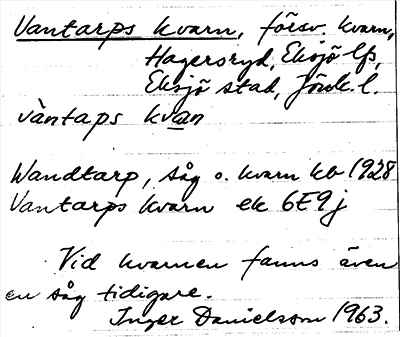 Vantarps kvarn, försv. kvarn,
Hagersryd, Eksjö lfs,
Eksjö stad, Jönk. l.
vàntaps kvan
Wandtarp, såg o. kvarn kb 1928
Vantarps kvarn ek 6E9j
Vid kvarnen fanns även
en såg tidigare.
Inger Danielsson 1963.